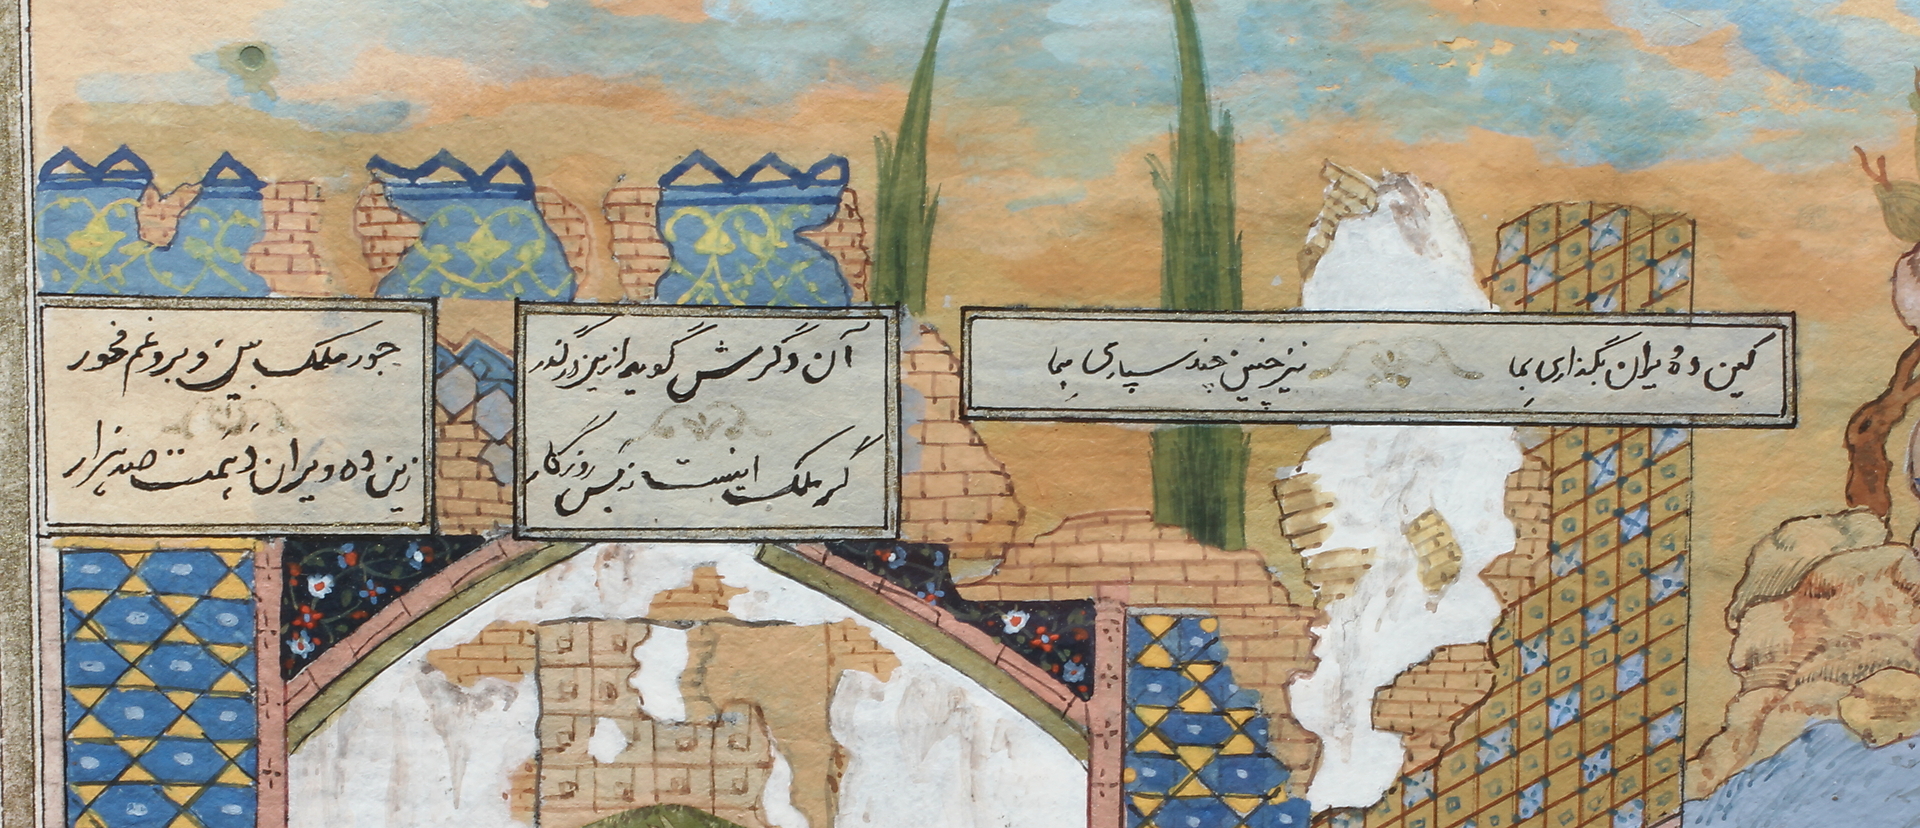 کین ده ویران بگذاری بما نیز چنین چند سپاری بما
آن دگرش گوید ازین درگذر
جور ملک بین و برو غم مخور
گر ملک اینست نه بس روزگار
زین ده ویران دهمت صد هزار